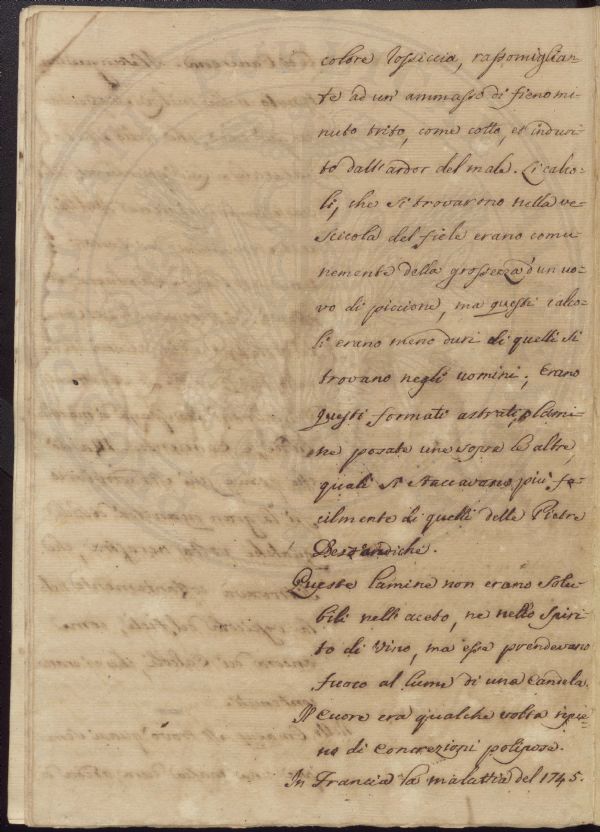 colore rossiccia, rassomiglian-
te ad un' ammasso di fieno mi-
nuto trito, come cotto, et induri-
to dall' ardor del male. Li calco-
li, che si trovarono nella ve-
scicola del fiele erano comu-
nemente della grossezza d'un uo-
vo di piccione, ma questi calco-
li erano meno duri di quelli si
trovano negli uomini; Erano
questi formati a strati, o lami-
ne posate une sopra le altre,
quali si staccavano più fa-
cilmente di quelli delle Pietre
Bezuardiche.
Queste lamine non erano solu-
bili nell' aceto, ne nello spiri-
to di Vino, ma esse prendevano
fuoco al lume di una Candela.
Il Cuore era qualche volta ripie-
na di Concrezioni polipose.
In Francia la malattia del 1745.